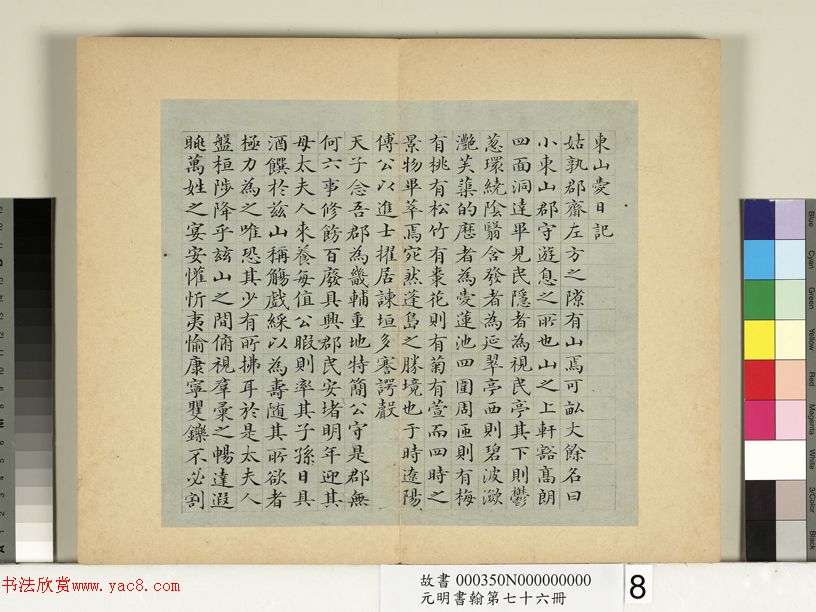 東山愛日記
姑孰郡齋左方之隙有山焉可畝丈餘名曰
小東山郡守遊息之所也山之上軒豁高朗
四面洞達畢見民隱者為視民亭其下則鬱
葱環繞陰翳含發者為延翠亭西則碧波瀲
灔芙蕖的歷者為愛蓮池四圍周匝則有梅
有桃有松竹有棗花則有菊有萱而四時之
景物畢萃焉宛然蓬島之勝境也于時遼陽
傅公以進士擢居諫垣多謇諤聲
天子念吾郡為畿輔重地特簡公守是郡無
何六事修飭百廢具興郡民安堵明年迎其
母太夫人來養每值公暇則率其子孫日具
酒饌於茲山稱觴戲綵以為壽随其所欲者
極力為之唯恐其少有所拂耳於是太夫人
盤桓陟降乎茲山之間俯視羣彙之暢達遐
眺萬姓之宴安懽忻夷愉康寧矍鑠不必割
书法欣赏www.yac8.com
故書 000350N000000000
元明書翰第七十六冊
8
Blue
Cyan
Green
Yellow
Red
Magenta
White
3/Color
Black